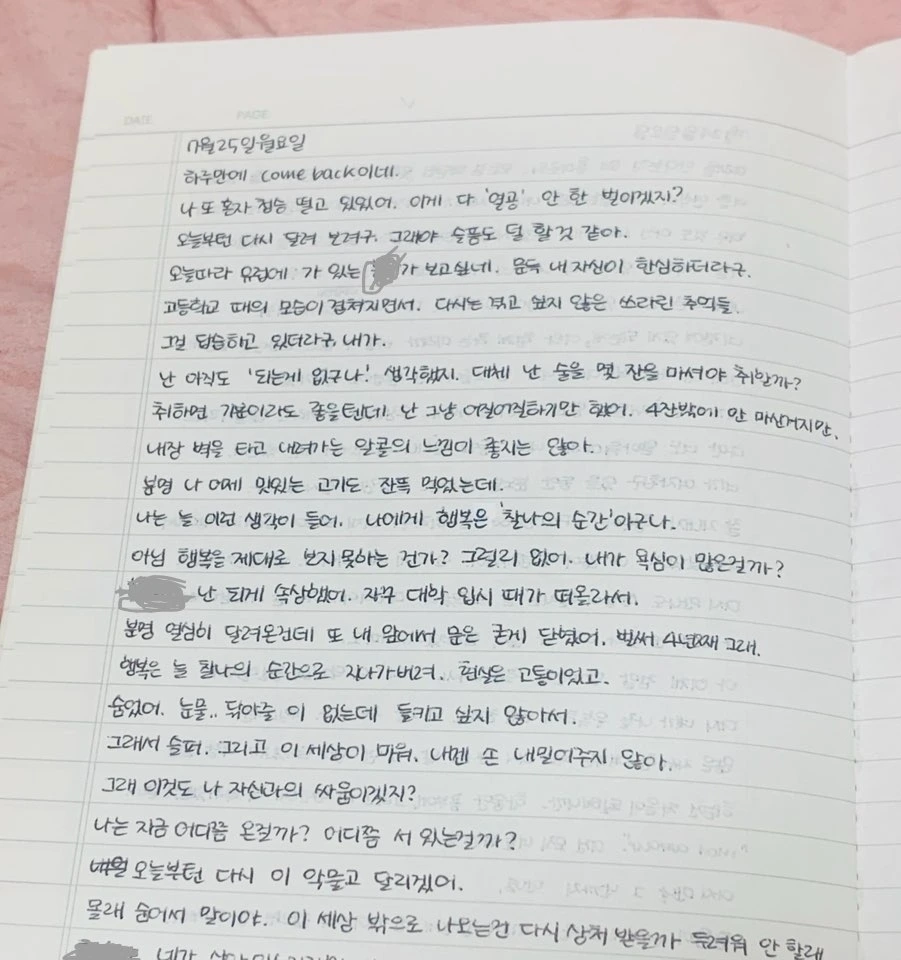 DATE PAGE
7월25일 월요일
하루만에 come back이네.
나 또 혼자 청승 떨고 있었어. 이게 다 '열공' 안 한 벌이겠지?
오늘부턴 다시 달려 보려구. 그래야 슬픔도 덜 할 것 같아.
오늘따라 유럽에 가 있는 가 보고싶네. 문득 내 자신이 한심하더라구.
고등학교 때의 모습이 겹쳐지면서. 다시는 겪고 싶지 않은 쓰라린 추억들.
그걸 답습하고 있더라구, 내가.
난 아직도 '되는게 없구나' 생각했지. 대체 난 술을 몇 잔을 마셔야 취할까?
취하면 기분이라도 좋을텐데. 난 그냥 어질어질하기만 했어. 4잔밖에 안 마신거지만.
내장 벽을 타고 내려가는 알콜의 느낌이 좋지는 않아.
분명 나 어제 맛있는 고기도 잔뜩 먹었는데.
나는 늘 이런 생각이 들어. 나에게 행복은 '찰나의 순간'이구나.
아님 행복을 제대로 보지 못하는 건가? 그럴리 없어. 내가 욕심이 많은걸까?
난 되게 속상했어. 자꾸 대학 입시 때가 떠올라서.
분명 열심히 달려온건데 또 내 앞에서 문은 굳게 닫혔어. 벌써 4년째 그래.
행복은 늘 찰나의 순간으로 지나가버려. 현실은 고통이었고.
숨었어. 눈물.. 닦아줄 이 없는데 들키고 싶지 않아서.
그래서 슬퍼. 그리고 이 세상이 미워. 내겐 손 내밀어주지 않아.
그래 이것도 나 자신과의 싸움이겠지?
나는 지금 어디쯤 온걸까? 어디쯤 서 있는걸까?
오늘부턴 다시 이 악물고 달리겠어.
몰래 숨어서 말이야. 이 세상 밖으로 나오는건 다시 상처 받을까 두려워 안 할래
네가